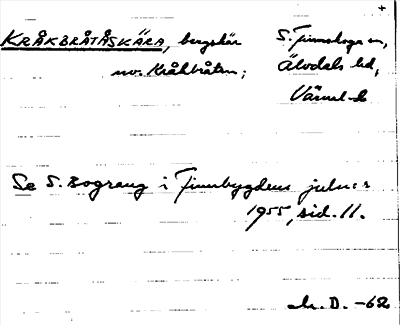 +
KRÅKBRÅTÅSKÄRA, bergskär S. Finnskoga sn,
nv. Kråkbråten; Älvdals hd,
Värml.
Se S. Bograng i Finnbygdens julnr
1955, sid. 11.
D. -62